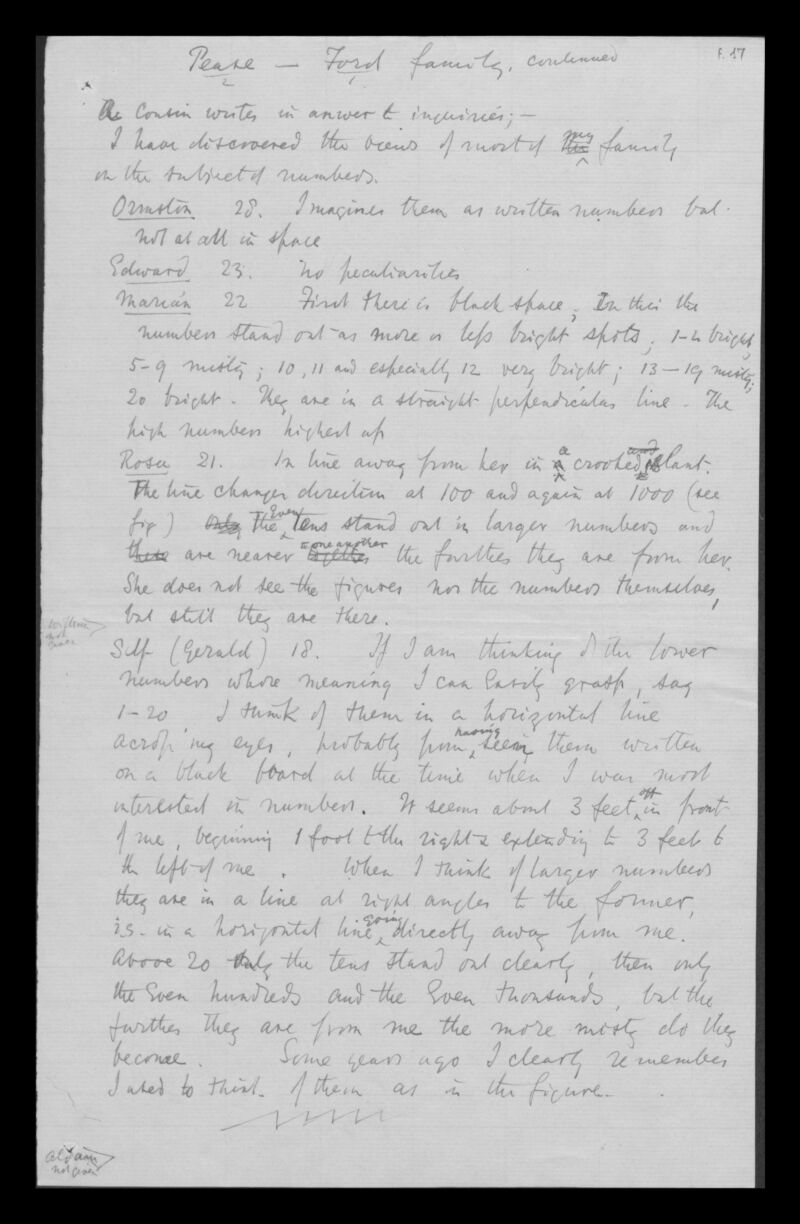 Pease — Ford family, continued
2 1
f. 17
The Cousin writes in answer to inquiries; —
I have discovered the views of most of my family
on the subject of numbers.
Ormston 28. Imagines them as written numbers but
not at all in space
Edward 23. No peculiarities
Marian 22 First there is black space; In this the
numbers stand out as more or less bright spots; 1-4 bright,
5-9 misty; 10, 11 and especially 12 very bright; 13-19 misty;
20 bright. They are in a straight perpendicular line. The
high numbers highest up
Rosa 21. In line away from her in a crooked slant.
The line changes direction at 100 and again at 1000 (see
fig) The Even tens stand out in larger numbers and
are nearer one another the further they are from her.
She does not see the figures nor the numbers themselves,
but still they are there.
not
Self (Gerald) 18. If I am thinking of the lower
numbers whose meaning I can easily grasp, say
1-20 I think of them in a horizontal line
across my eyes, probably from having seeing them written
on a black board at the time when I was most
interested in numbers. It seems about 3 feet off in front
of me, beginning 1 foot to the right & extending to 3 feet to
the left of me. When I think of larger numbers
they are in a line at right angles to the former,
i.e. in a horizontal line going directly away from me.
Above 20 only the tens stand out clearly, then only
the Even hundreds and the Even thousands, but the
further they are from me the more misty do they
become. Some years ago I clearly remember
I used to think of them as in the figure.
not given